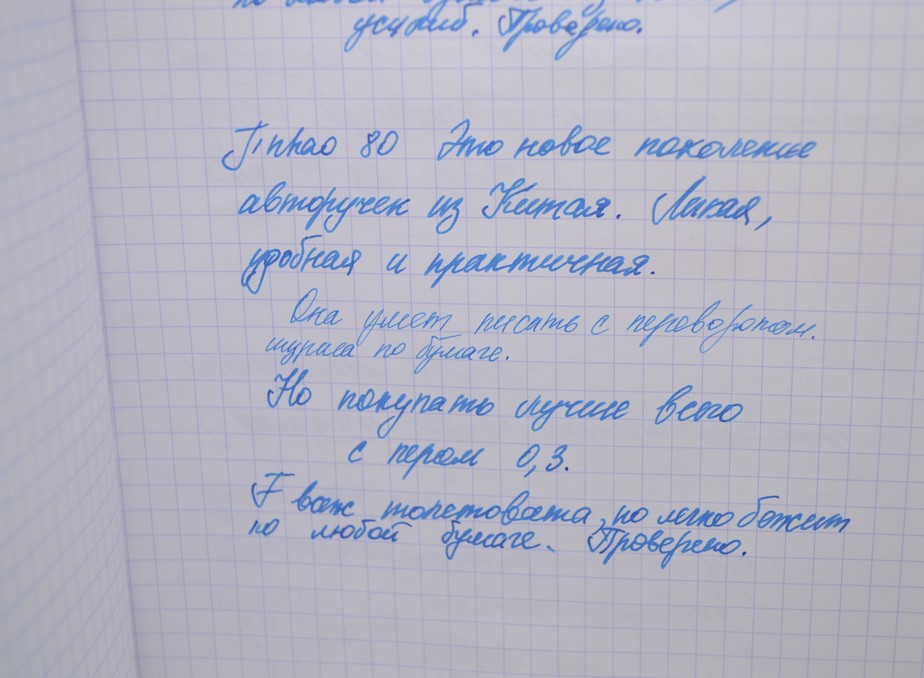 усилиб. Проверено.
Jinhao 80 Это новое поколение
авторучек из Китая. Легкая,
удобная и практичная.
Она умеет писать с переворотом.
шурша по бумаге.
Но покупать лучше всего
с пером 0,3.
F вам толстовата, но легко бежит
по любой бумаге. Проверено.